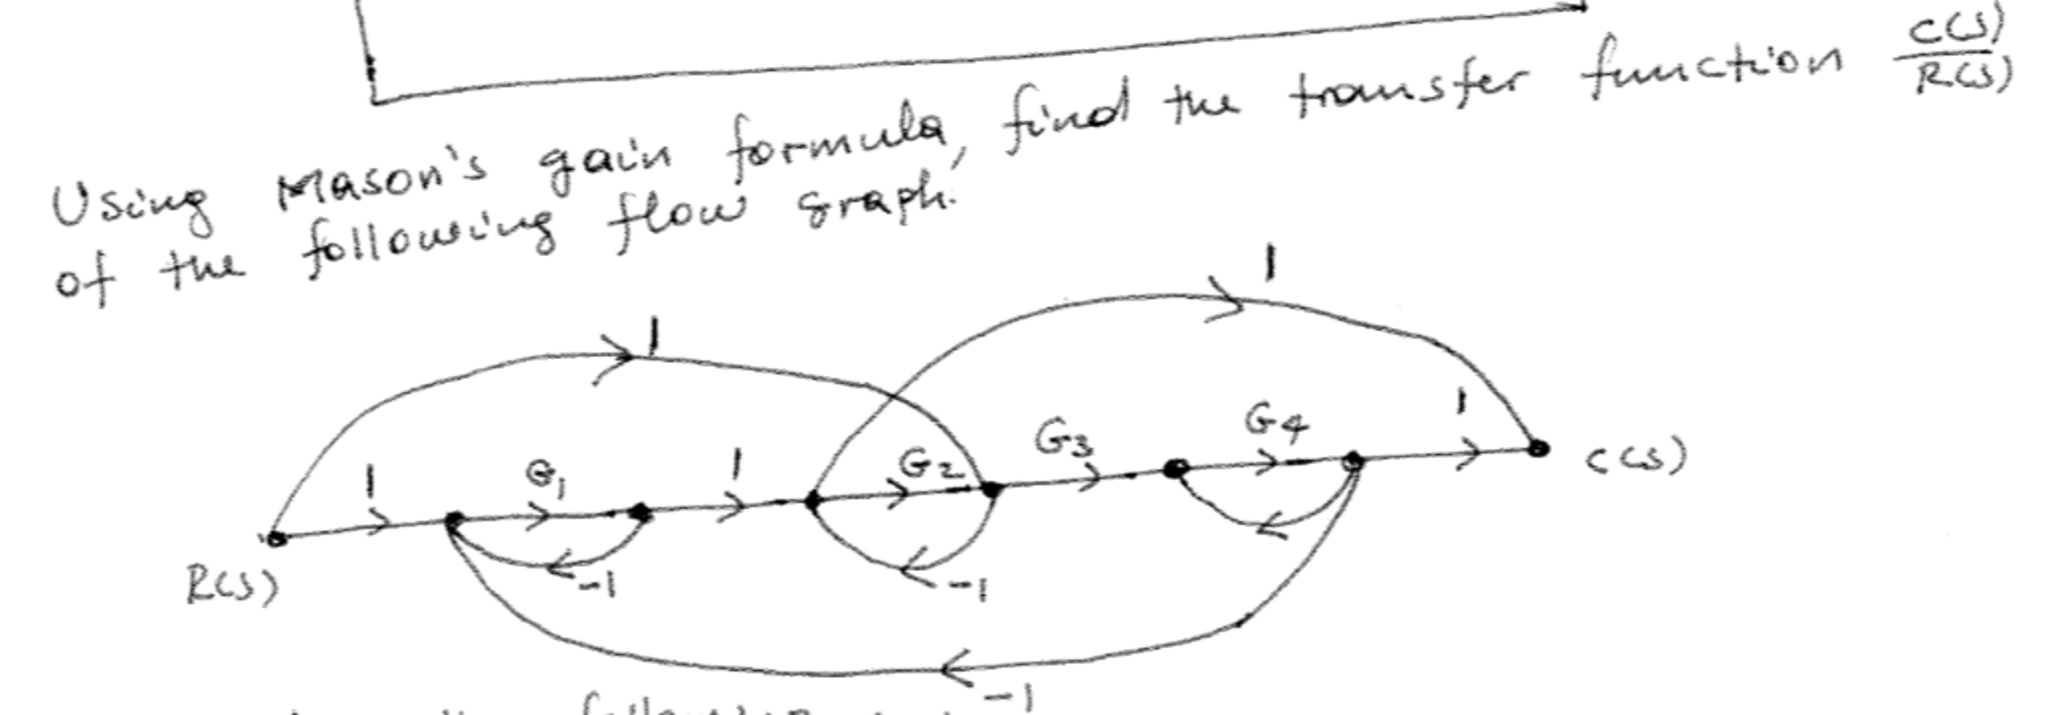 C(S)
R(S)
Using Mason's gain formula, find the transfer function
of the following flow graph.
1
1
1
G1
1
G2
G3
G4
1
C(S)
R(S)
-1
-1
-1